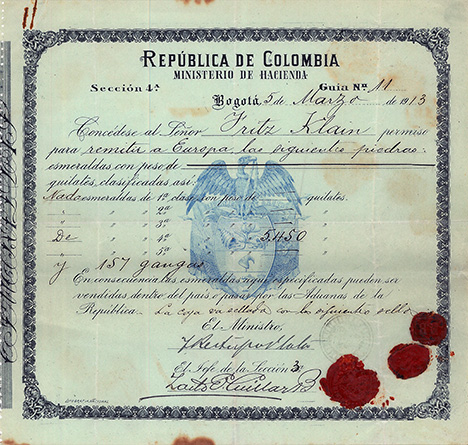 11
REPÚBLICA DE COLOMBIA
MINISTERIO DE HACIENDA
Sección 4ª Guia Nº 11
Bogotá 5 de Marzo de 1913
Concédese al Señor Fritz Klain permiso
para remitir a Europa las siguientes piedras
esmeraldas con peso de
quilates, clasificadas así:
Nada esmeraldas de 1ª clase con peso de quilates.
" " 2ª " "
" " 3ª " "
De " " 4ª " 5,450 "
" " 5ª " "
y 157 gangas
En consecuencia las esmeraldas aquí especificadas pueden ser
vendidas dentro del país o pasar por las Aduanas de la
República. La caja va sellada con el siguiente sello
El Ministro,
El Jefe de la Sección 3